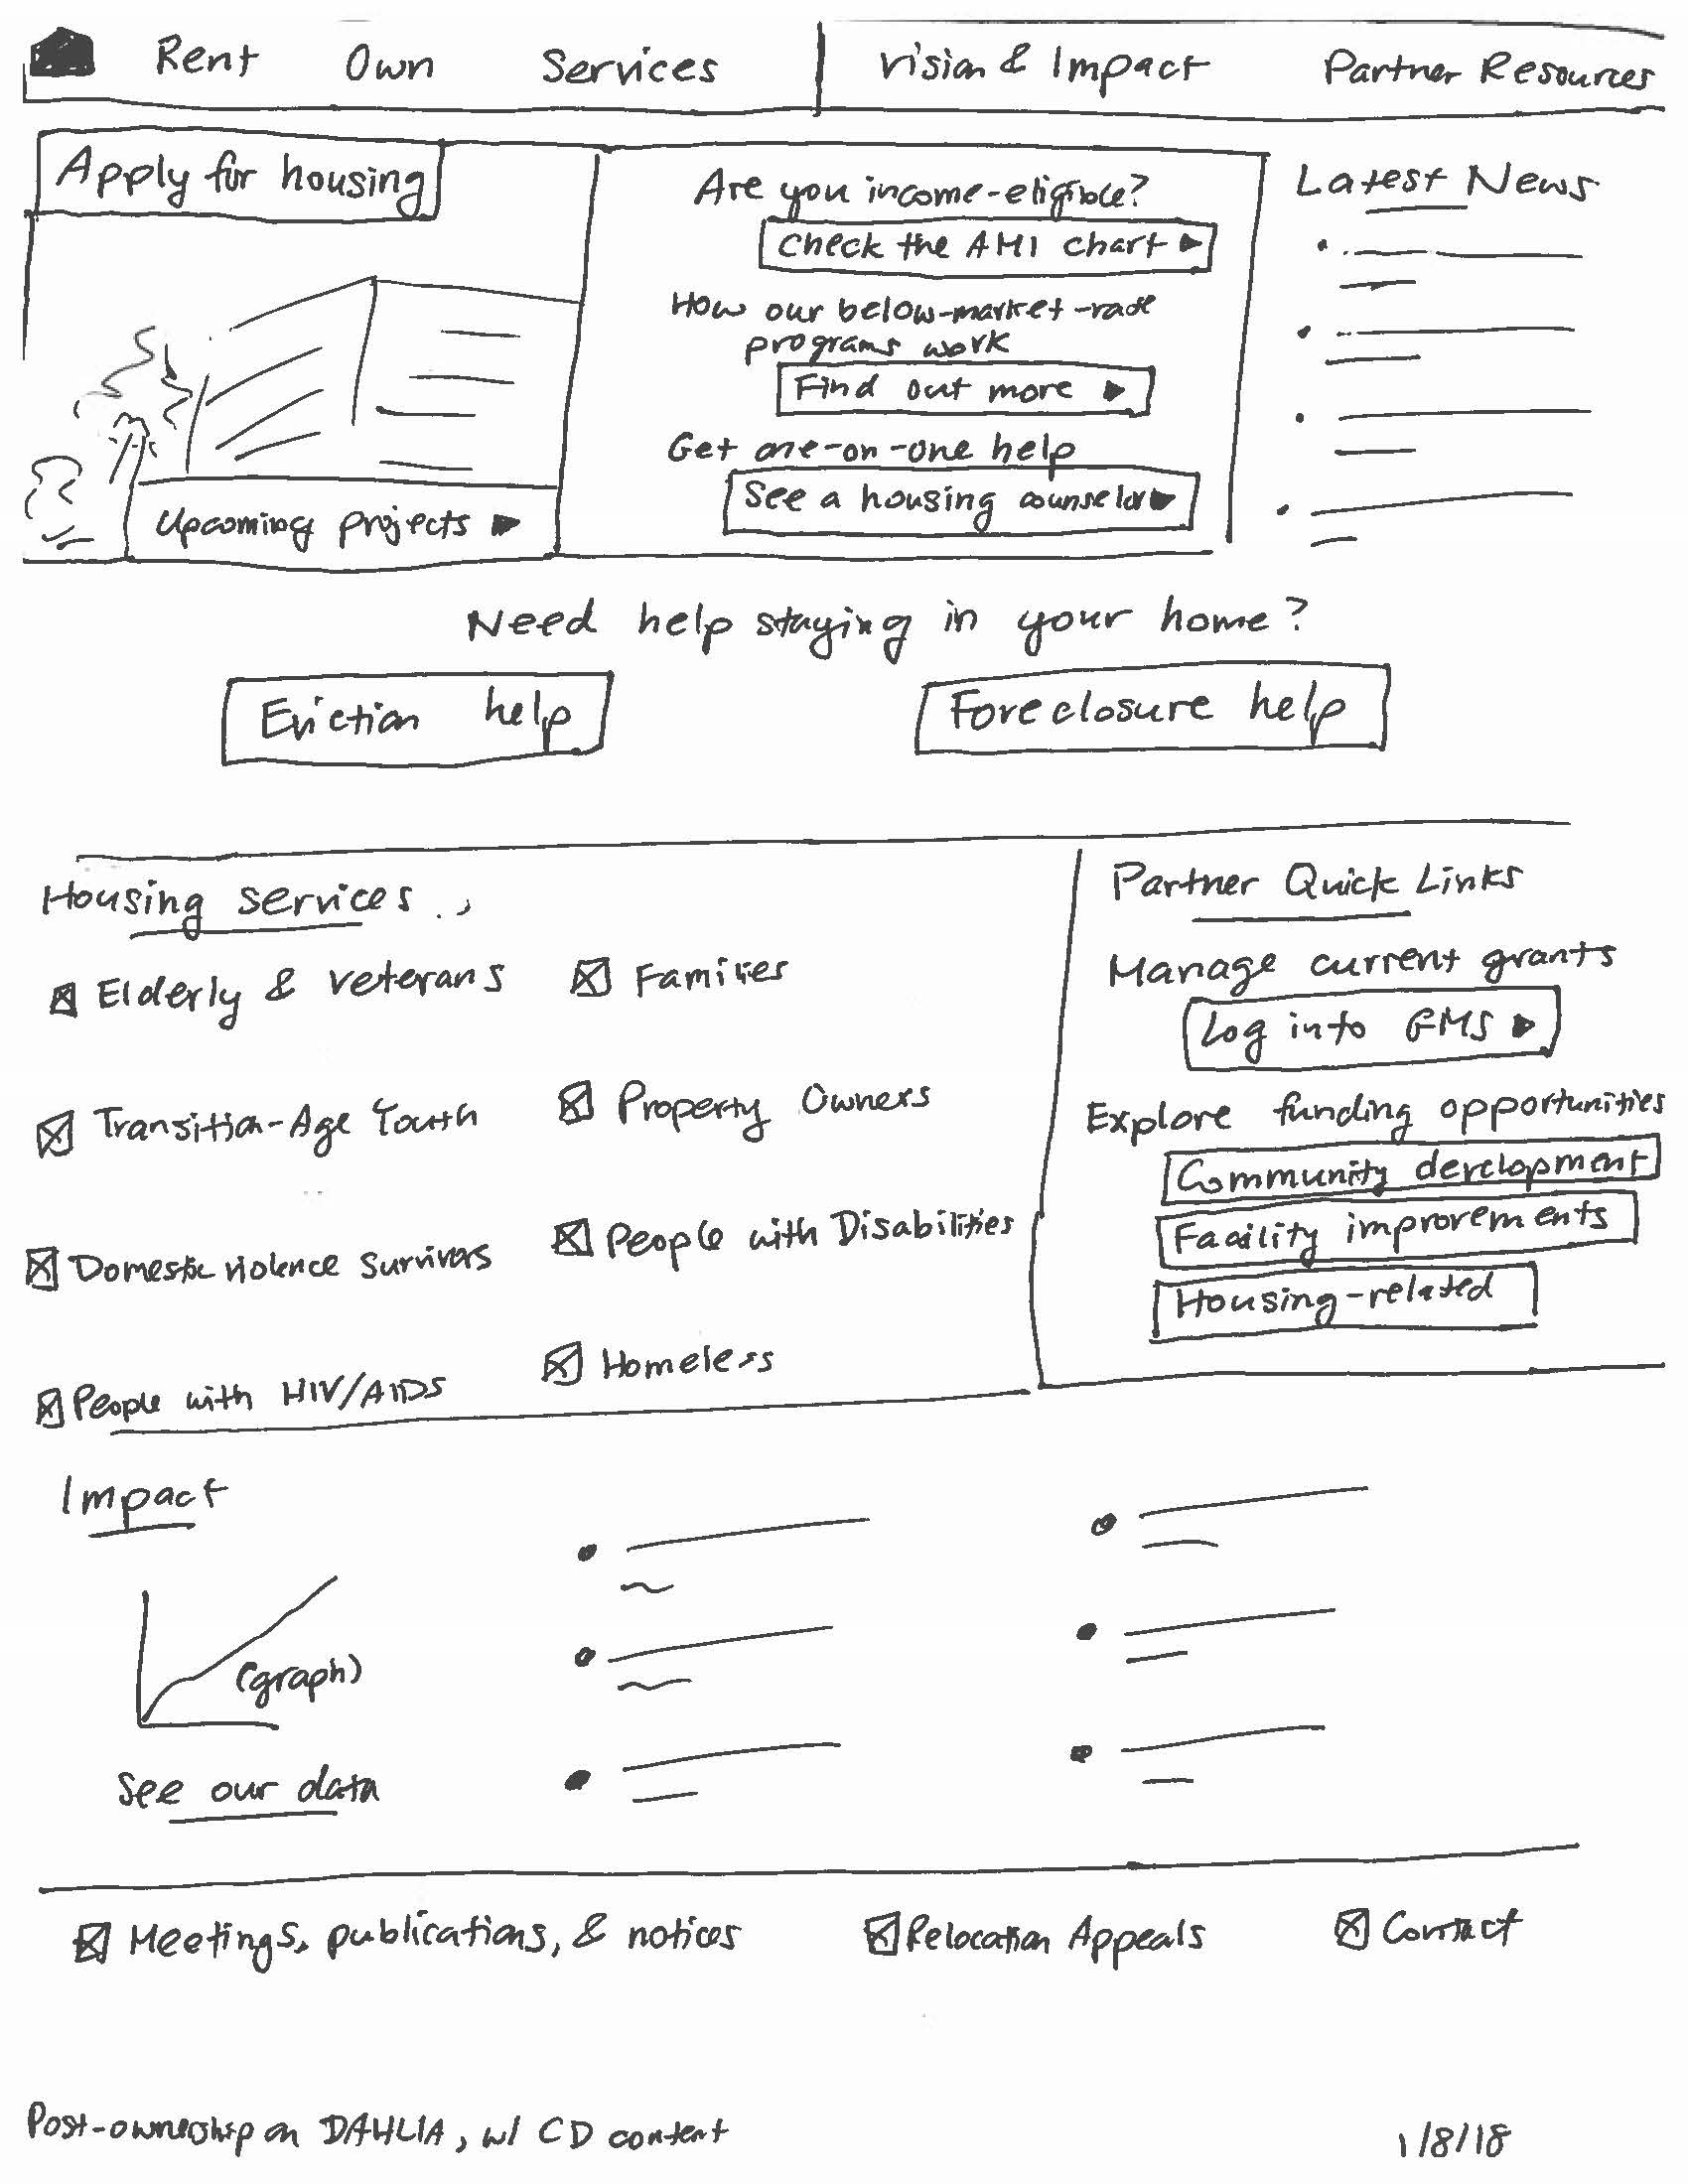 Rent Own Services Vision & Impact Partner Resources
Apply for housing
Upcoming projects
Are you income-eligible?
Check the AMI chart
How our below-market-rate
programs work
Find out more
Get one-on-one help
See a housing counselor
Latest News
Need help staying in your home?
Eviction help
Foreclosure help
Housing services
Elderly & veterans
Families
Transition-Age Youth
Property Owners
Domestic violence survivors
People with Disabilities
People with HIV/AIDS
Homeless
Partner Quick Links
Manage current grants
Log into GMS
Explore funding opportunities
Community development
Facility improvements
Housing-related
Impact
(graph)
See our data
Meetings, publications, & notices
Relocation Appeals
Contact
Post-ownership on DAHLIA, w/ CD content
1/8/18